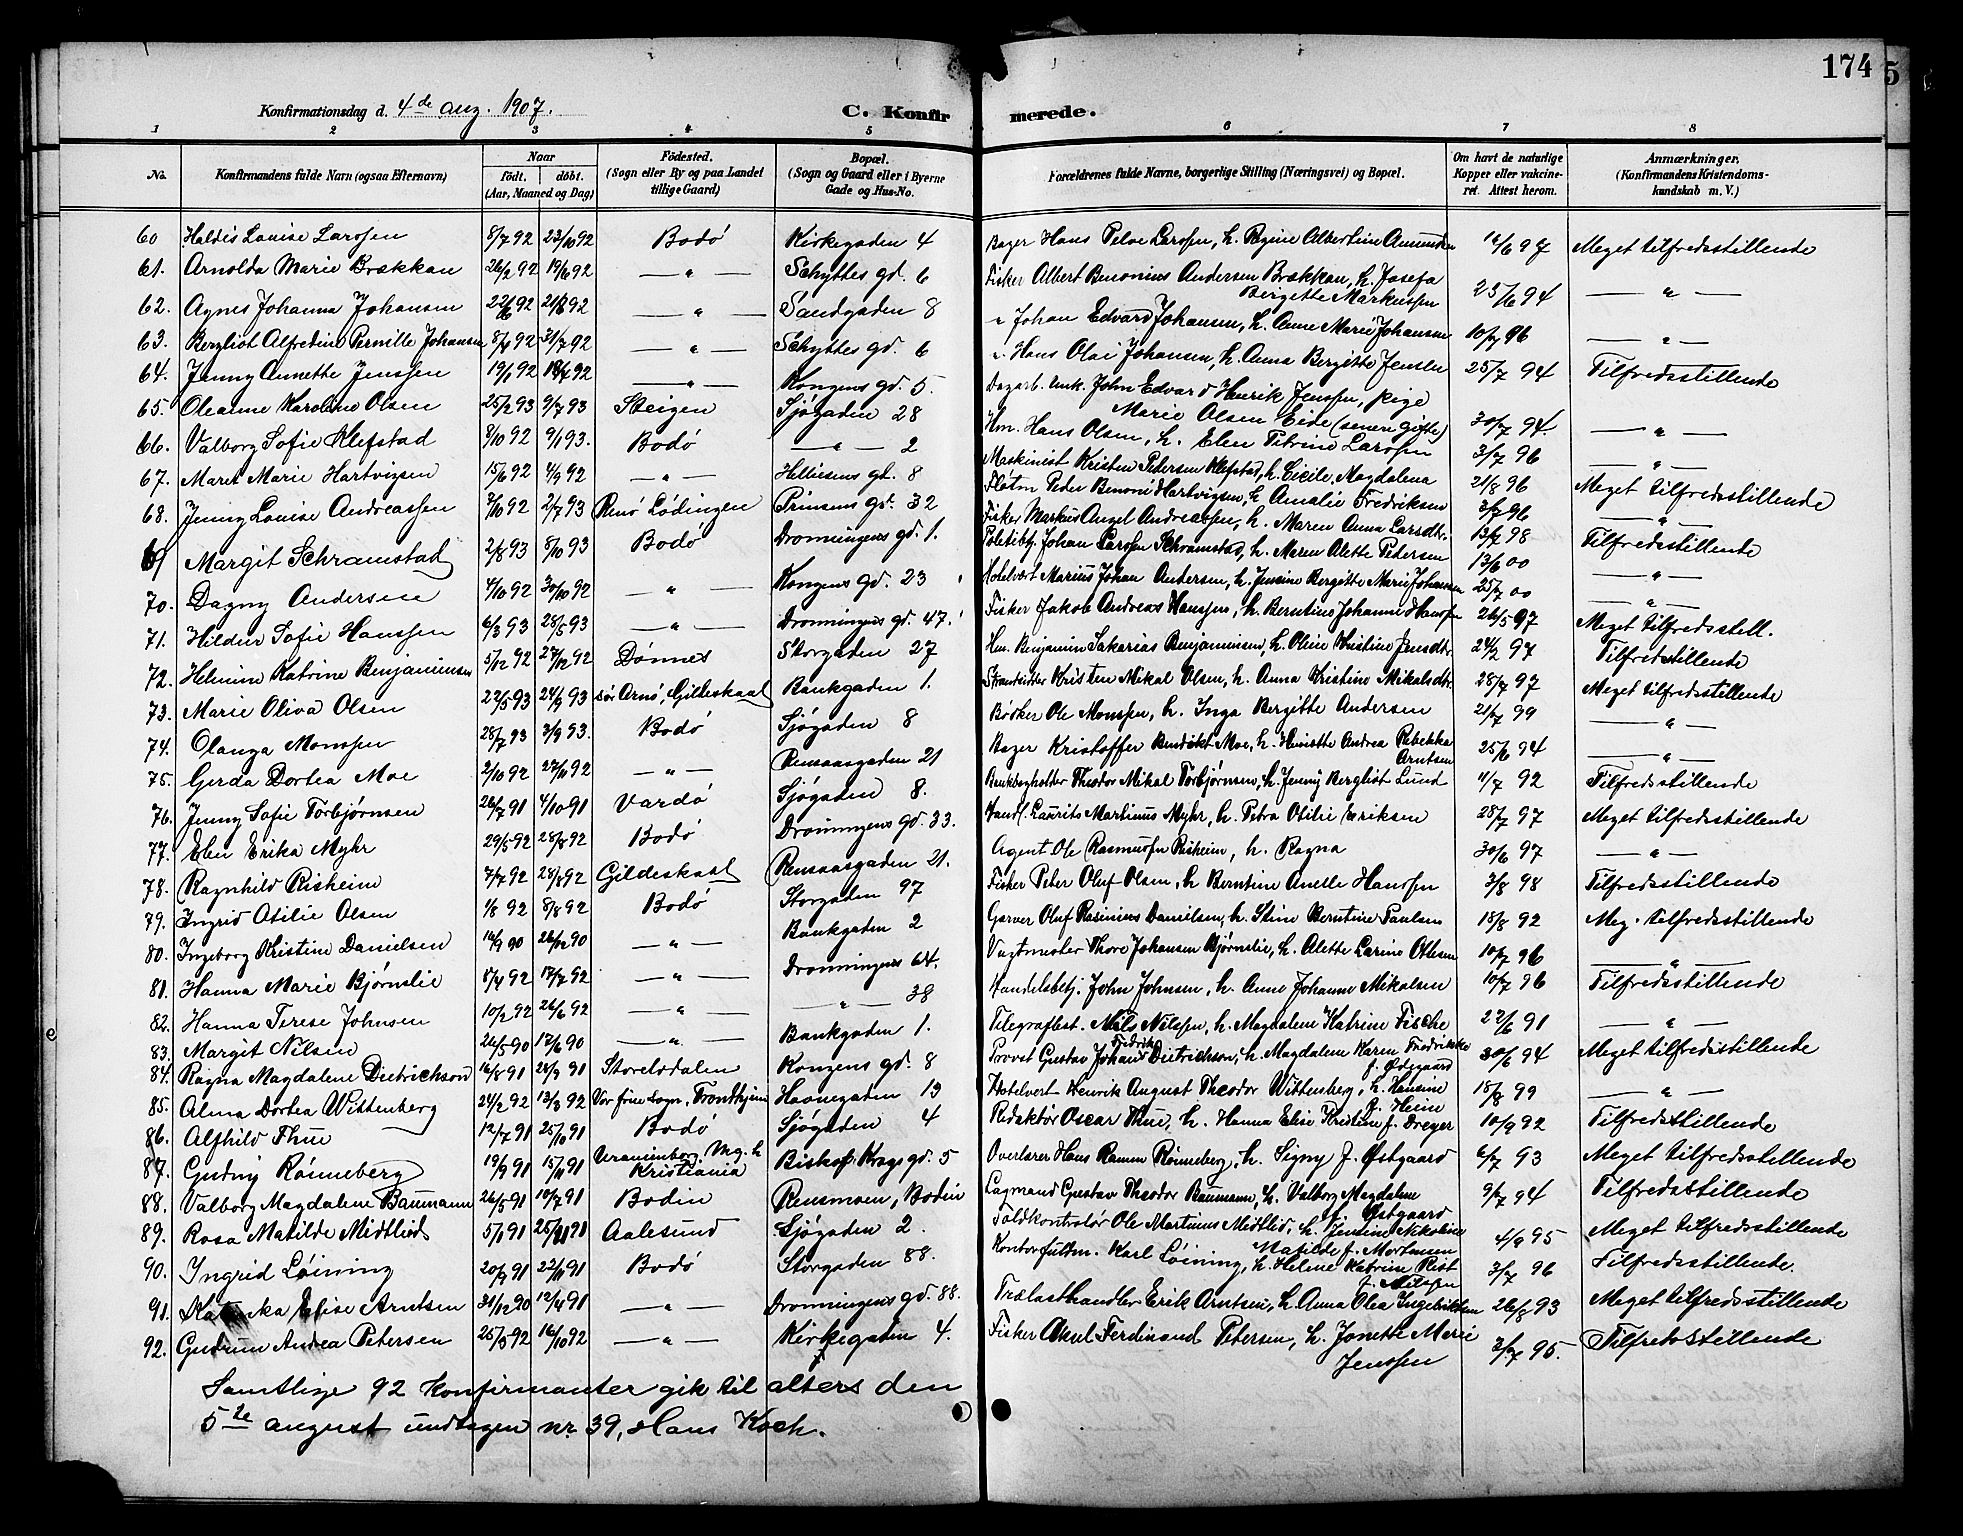 174
5
Konfirmationsdag d. 4de aug. 1907.
C. Konfirmerede.
1 2 3 4 5 6 7 8
No.
Konfirmandens fulde Navn (ogsaa Efternavn)
Naar
født. døbt.
(Aar, Maaned og Dag)
Fødested.
(Sogn eller By og paa Landet
tillige Gaard)
Bopæl.
(Sogn og Gaard eller i Byerne
Gade og Hus-No.
Forældrenes fulde Navne, borgerlige Stilling (Næringsvei) og Bopæl.
Om havt de naturlige
Kopper eller vakcine-
ret. Attest herom.
Anmærkninger.
(Konfirmandens Kristendoms-
kundskab m. V.)
60 Haldis Louise Larssen 8/7 92 23/10 92 Bodø Kirkegaden 4 Bager Hans Peloe Larssen, h. Regine Albertine Amundsen Meget tilfredsstillende
61. Arnolda Marie Brækkan 26/2 92 19/6 92 — " — Schyttes gd. 6 Fisker Albert Benonius Andersen Brækkan, h. Josefa
Bergette Markussen 25/6 94 — " —
62. Agnes Johanna Johansen — " — Sandgaden 8 " Johan Edvard Johansen, h. Anne Marie Johansen 10/7 96 — " —
63. Bergliot Alfredine Pernille Johansen 31/7 92 — " — Schyttes gd. 6 " Hans Olai Johansen, h. Anna Bergitte Jensen 25/7 94 Tilfredsstillende
64. Jenny Annette Jenssen 19/1 92 — " — Kongens gd. 5. Dagarb. Unk. John Edvard Henrik Jenssen, pige
Marie Olsen Eide (senere gifte) 30/7 94. — " —
65. Oleanne Karoline Olsen 25/2 93 9/7 93 Steigen Sjøgaden 28 Hm. Hans Olsen, h. Elen Petrine Larssen 3/7 96 — " —
66. Valborg Sofie Klefstad 8/10 92 9/1 93. Bodø — " — 2 Maskinist Kristen Pedersen Klefstad, h. Cicilie Magdalena 21/8 96 Meget tilfredsstillende
67. Maret Marie Hartvigsen 15/6 92 4/9 92 — " — Hellisens gt. 8 Fløtm Peder Benoni Hartvigsen, h. Amalie Fredriksen 3/7 96 — " —
68. Jenny Louise Andreassen 7/10 92 2/7 93 Renø Lødingen Prinsens gt. 32 Fisker Markus Angel Andreassen, h. Maren Anna Larsdtr. 13/7 98 Tilfredsstillende
69 Margit Schramstad 2/8 93 8/10 93 Bodø Dronningens gd. 1. Politibtj. Johan Larssen Schramstad, h. Maren Alette Pedersen 13/6 00 — " —
70. Dagny Andersen 4/10 92 30/10 92 — " — Kongens gd. 23 Hotelvært Marius Johan Andersen, h. Jensine Bergitte Marie Johansen 25/7 00 — " —
71. Hildur Sofie Hanssen 6/3 93 28/5 93 — " — Dronningens gd. 47. Fisker Jakob Andreas Hanssen, h. Berntine Johanne Hanssen 26/5 97 Meget tilfredsstill.
72. Helmine Katrine Benjaminsen 5/12 92 27/12 92 Dønnes Storgaden 27 Hm. Benjamin Sakarias Benjaminsen, h. Oline Kristine Jensdtr. 24/2 97 Tilfredsstillende
73. Marie Oliva Olsen 22/5 93 24/9 93 sør Arnø, Gildeskaal Bankgaden 1. Kristen Mikal Olsen, h. Anna Kristine Mikalsdtr. 28/7 97 Meget tilfredsstillende
74. Olanga Monssen 28/7 93 3/9 93. Bodø Sjøgaden 8 Bødker Ole Monssen, h. Inga Bergitte Andersen 21/7 99 — " —
75. Gerda Dortea Moe 2/10 92 27/11 92 — " — Rensaasgaden 21 Bager Kristoffer Bendikt Moe, h. Henriette Andrea Rebekka
Arntsen 25/6 94 — " —
76. Jenny Sofie Torbjørnsen 26/7 91 4/10 91 Vardø Sjøgaden 8. Theodor Mikal Torbjørnsen, h. Jenny Bergliot Lund 11/7 92 Tilfredsstillende
77. Elen Erika Myhr 29/5 92 28/8 92 Bodø Dronningens gd. 33. Handl. Laurits Martinus Myhr, h. Petra Otilie Eriksen 28/7 97 Meget tilfredsstillende
78. Ragnhild Risheim 7/7 92 28/8 92 Gildeskaal Rensaasgaden 21. Agent Ole Rasmussen Risheim, h. Ragna 30/6 97 — " —
79. Ingrid Otilie Olsen 1/8 92 8/8 92 Bodø Storgaden 97 Fisker Peter Oluf Olsen, h Berntine Anelle Hanssen 3/8 98 Tilfredsstillende
80. Ingeborg Kristine Danielsen 16/9 90 26/12 90 — " — Bankgaden 2 Garver Oluf Rasinius Danielsen, h. Stine Berntine Paulsen 18/8 92 Meg. tilfredsstillende
81. Hanna Marie Bjørnslie 17/4 92 17/7 92 — " — Dronningens 64. Vagtmester Thore Johansen Bjørnslie, h. Alette Larine Ottesen 10/7 96 — " —
82. Hanna Terese Johnsen 10/2 92 26/6 92 — " — — " — 38 Handelsbetj. John Johnsen, h. Anne Johanne Mikalsen 10/7 96 Tilfredsstillende
83. Margit Nilsen 26/5 90 17/6 90 — " — Bankgaden 1. Telegrafbest. Nils Nilssen, h. Magdalene Katrine Fische 22/6 91 — " —
84. Ragna Magdalene Dietrichson 16/8 91 28/9 91 Storelvdalen Kongens gd. 8 Provst Gustav Johans Fredrik Dietrichson, h. Magdalene Karen Fredrikke
f. Ødegaard 30/6 94 Meget tilfredsstillende
85. Alma Dortea Wittenberg 24/2 92 13/3 92 Vor frue sogn, Trondhjem Havnegaden 13 Hotelvert Henrik August Theodor Wittenberg, h. Hansine
f. Heim 18/8 99 — " —
86. Alfhild Thue 12/7 91 25/10 91 Bodø Sjøgaden 4 Redaktør Oscar Thue, h. Hanna Elise Kristine f. Dreyer 10/9 92 Tilfredsstillende
87. Gudny Rønneberg 19/9 91 15/11 91 Uranienborg Mg. h
Kristiania Biskop Krags gd. 5 Overlærer Hans Ramm Rønneberg, h. Signy f. Østgaard 6/7 93 Meget tilfredsstillende
88. Valborg Magdalene Baumann 26/5 91 19/7 91 Bodin Rensmoen, Bodin Lagmand Gustav Theodor Baumann, h. Valborg Magdalene
f. Østgaard 9/7 94 Tilfredsstillende
89. Rosa Matilde Midtlied 5/1 91 Aalesund Sjøgaden 2. Toldkontrolør Ole Martinus Midtlid, h. Jensine Nikoline
Matilde f. Mortensen 4/9 95 Meget tilfredsstillende
90. Ingrid Løining 20/9 91 22/11 91 Bodø Storgaden 88. Kontorfultm. Karl Løining, h. Helene Katrine Rist
f. Nilssen 3/7 96 Tilfredsstillende.
91. Katinka Elise Arntsen 31/12 90 12/4 91 — " — Dronningens gd. 88. Trælasthandler Erik Arntsen, h. Anna Olea Ingebriktsen 26/8 93 Meget tilfredsstillende
92. Gudrun Andrea Petersen 16/10 92 — " — Kirkegaden 4. Fisker Aksel Ferdinand Petersen, h. Jonette Marie
Jenssen 3/7 95. Tilfredsstillende
Samtlige 92 konfirmanter gik til alters den
5te august undtagen nr. 39, Hans Koch.